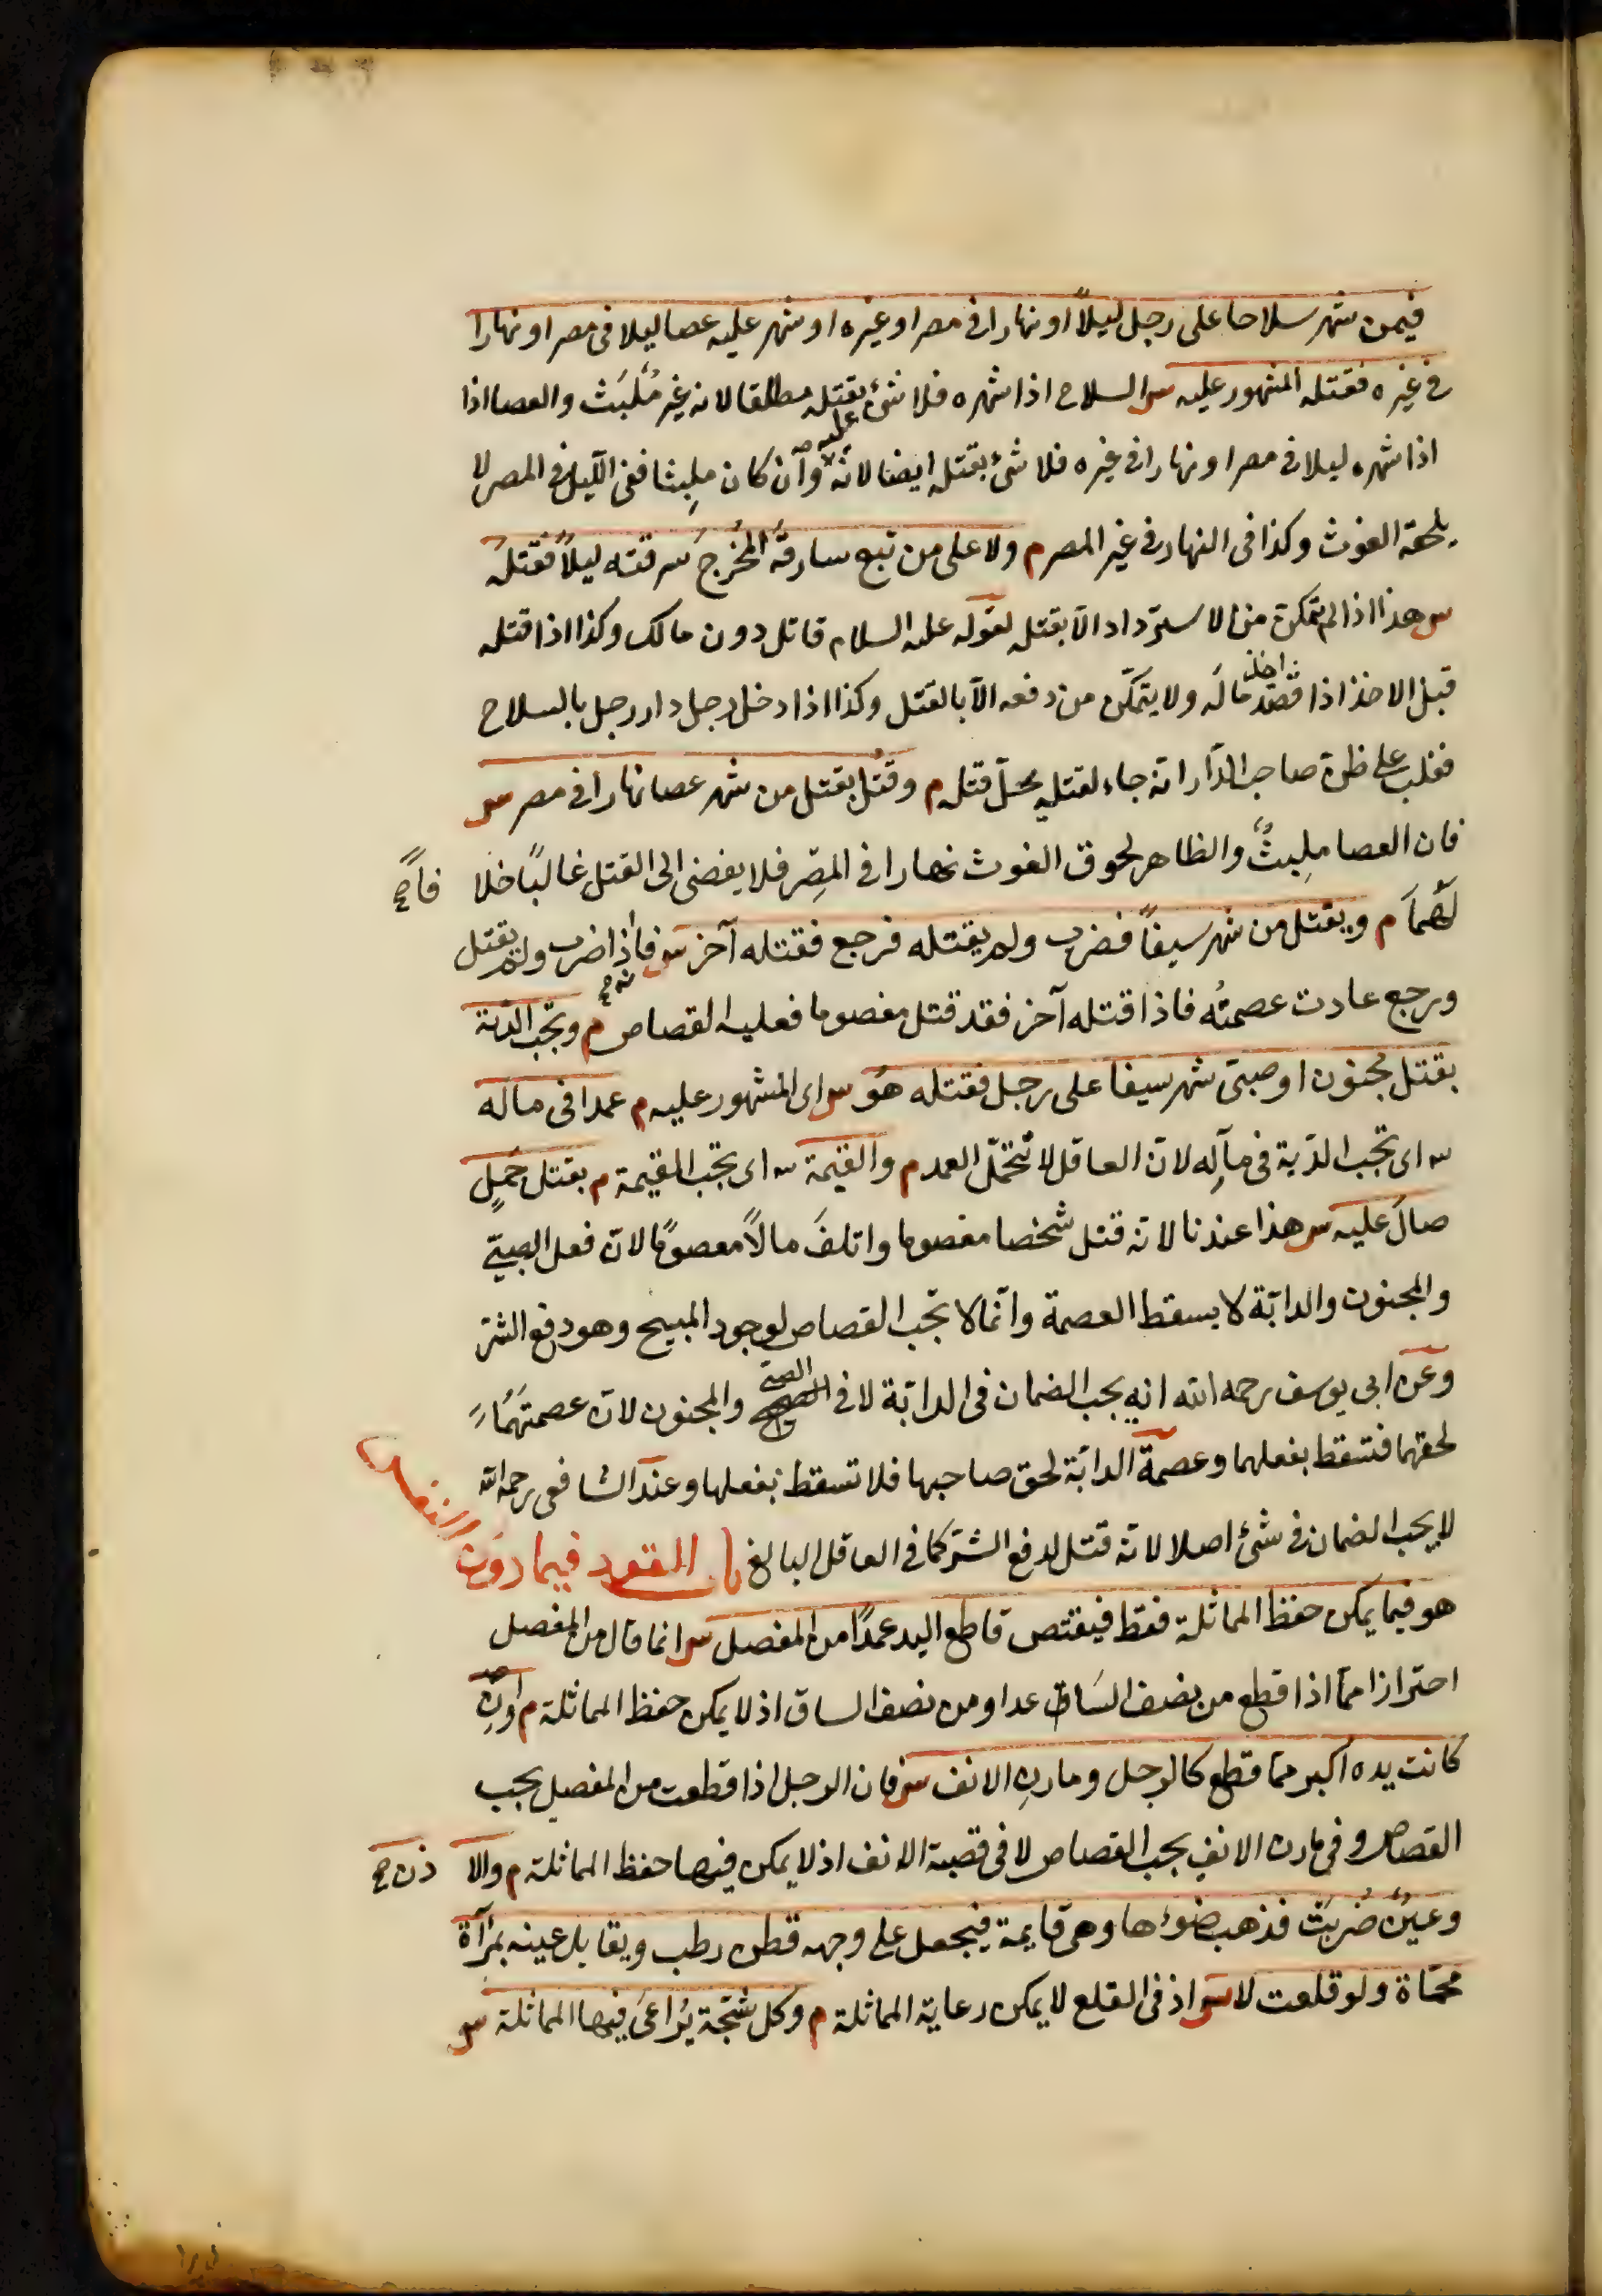 فيمن شهر سلاحا على رجل ليلاً او نهارا فى مصر او غيره او شهر عليه عصا ليلا فى مصر او نهارا
فى غيره فقتله المشهور عليه س السلاح اذا شهره فلا شئ عليه بقتله مطلقا لانه غير مُلبث والعصا اذا
اذا شهره ليلا فى مصر او نهارا فى غيره فلا شئ بقتله ايضا لانه وان كان ملبثا ففى الليل فى المصر لا
يلحقه الغوث وكذا فى النهار فى غير المصر م ولا على من تبع سارقه المُخرجَ سرقته ليلاً فقتله
س هذا اذا لم يتمكن من الاسترداد الّا بقتله لقوله عليه السلام قاتل دون مالك وكذا اذا قتله
قبل الاخذ اذا قصد اخذ ماله ولا يتمكّن من دفعه الّا بالقتل وكذا اذا دخل رجل دار رجل بالسلاح
فغلب على ظن صاحب الدّار انّه جاء لقتله يحلّ قتله م وقُتل بقتل من شهر عصا نهارا فى مصر س
فان العصا ملبثٌ والظاهر لحوق الغوث نهارا فى المِصر فلا يفضى الى القتل غالبًا خلافاً صح
لهما م ويقتل من شهر سيفاً فضرب ولم يقتله فرجع فقتله آخر س فانه صح اذا ضرب ولم يقتل
ورجع عادت عصمتُه فاذا قتله آخر فقد قتل معصوما فعليه القصاص م وتجب الدّية
بقتل مجنون او صبىّ شهر سيفا على رجل فقتله هُو س اى المشهور عليه م عمدا فى ماله
س اى تجب الدّية فى مالِه لانّ العاقل لا تتحمّل العمد م والقيمة س اى تجب القيمة م بقتل جملٍ
صالَ عليه س هذا عندنا لانه قتل شخصا معصوما واتلفَ مالاً معصومًا لانّ فعل الصبىّ
والمجنون والدابّة لا يسقط العصمة وانّما لا تجب القصاص لوجود المبيح وهو دفع الشرّ
وعن ابى يوسف رحمه الله انه يجب الضمان فى الدابّة لا فى الصبىّ والمجنون لانّ عصمتهُما
لحقهما فتسقط بفعلهما وعصمة الدابّة لحق صاحبها فلا تسقط بفعلها وعند الشافعى رحمه الله
لا يجب الضمان فى شئ اصلا لانه قتل لدفع الشرّ كما فى العاقل البالغ باب القود فيما دون النفس
هو فيما يمكن حفظ المماثلة فقط فيقتص قاطع اليد عمدًا من المفصل س انما قال من المفصل
احترازا عمّا اذا قطع من نصف السّاعد او من نصف الساق اذ لا يمكن حفظ المماثلة م وان
كانت يده اكبر ممّا قطع كالرجل ومارن الانف س فان الرجل اذا قطعت من المفصل يجب
القصاص وفى مارن الانف يجب القصاص لا فى قصبة الانف اذ لا يمكن فيها حفظ المماثلة م والاذن صح
وعينٌ ضُرِبَتْ فذهب ضوءها وهى قايمة فيجعل على وجهه قطن رطب ويقابل عينه بمرآة
محماة ولو قلعت لا س اذ فى القلع لا يمكن رعاية المماثلة م وكل شجّة يُراعىَ فيها المماثلة س